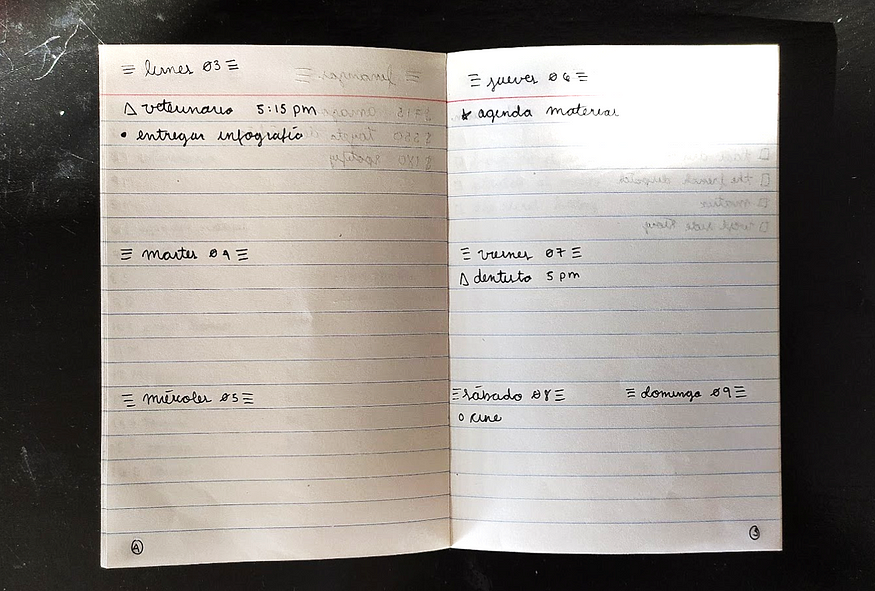 ≡ lunes 03 ≡
△ veterinario 5:15 pm
• entregar infografía
≡ martes 04 ≡
≡ miércoles 05 ≡
4
≡ jueves 06 ≡
agenda material
≡ viernes 07 ≡
△ dentista 5 pm
≡ sábado 08 ≡ ≡ domingo 09 ≡
o cine
5